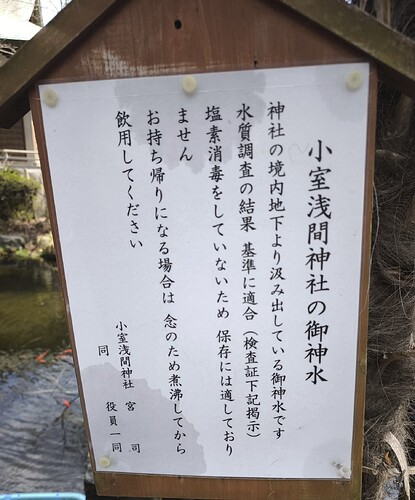 小室浅間神社の御神水
神社の境内地下より汲み出している御神水です
水質調査の結果 基準に適合（検査証下記掲示）
塩素消毒をしていないため 保存には適しており
ません
お持ち帰りになる場合は 念のため煮沸してから
飲用してください
小室浅間神社 宮 司
同 役員一同